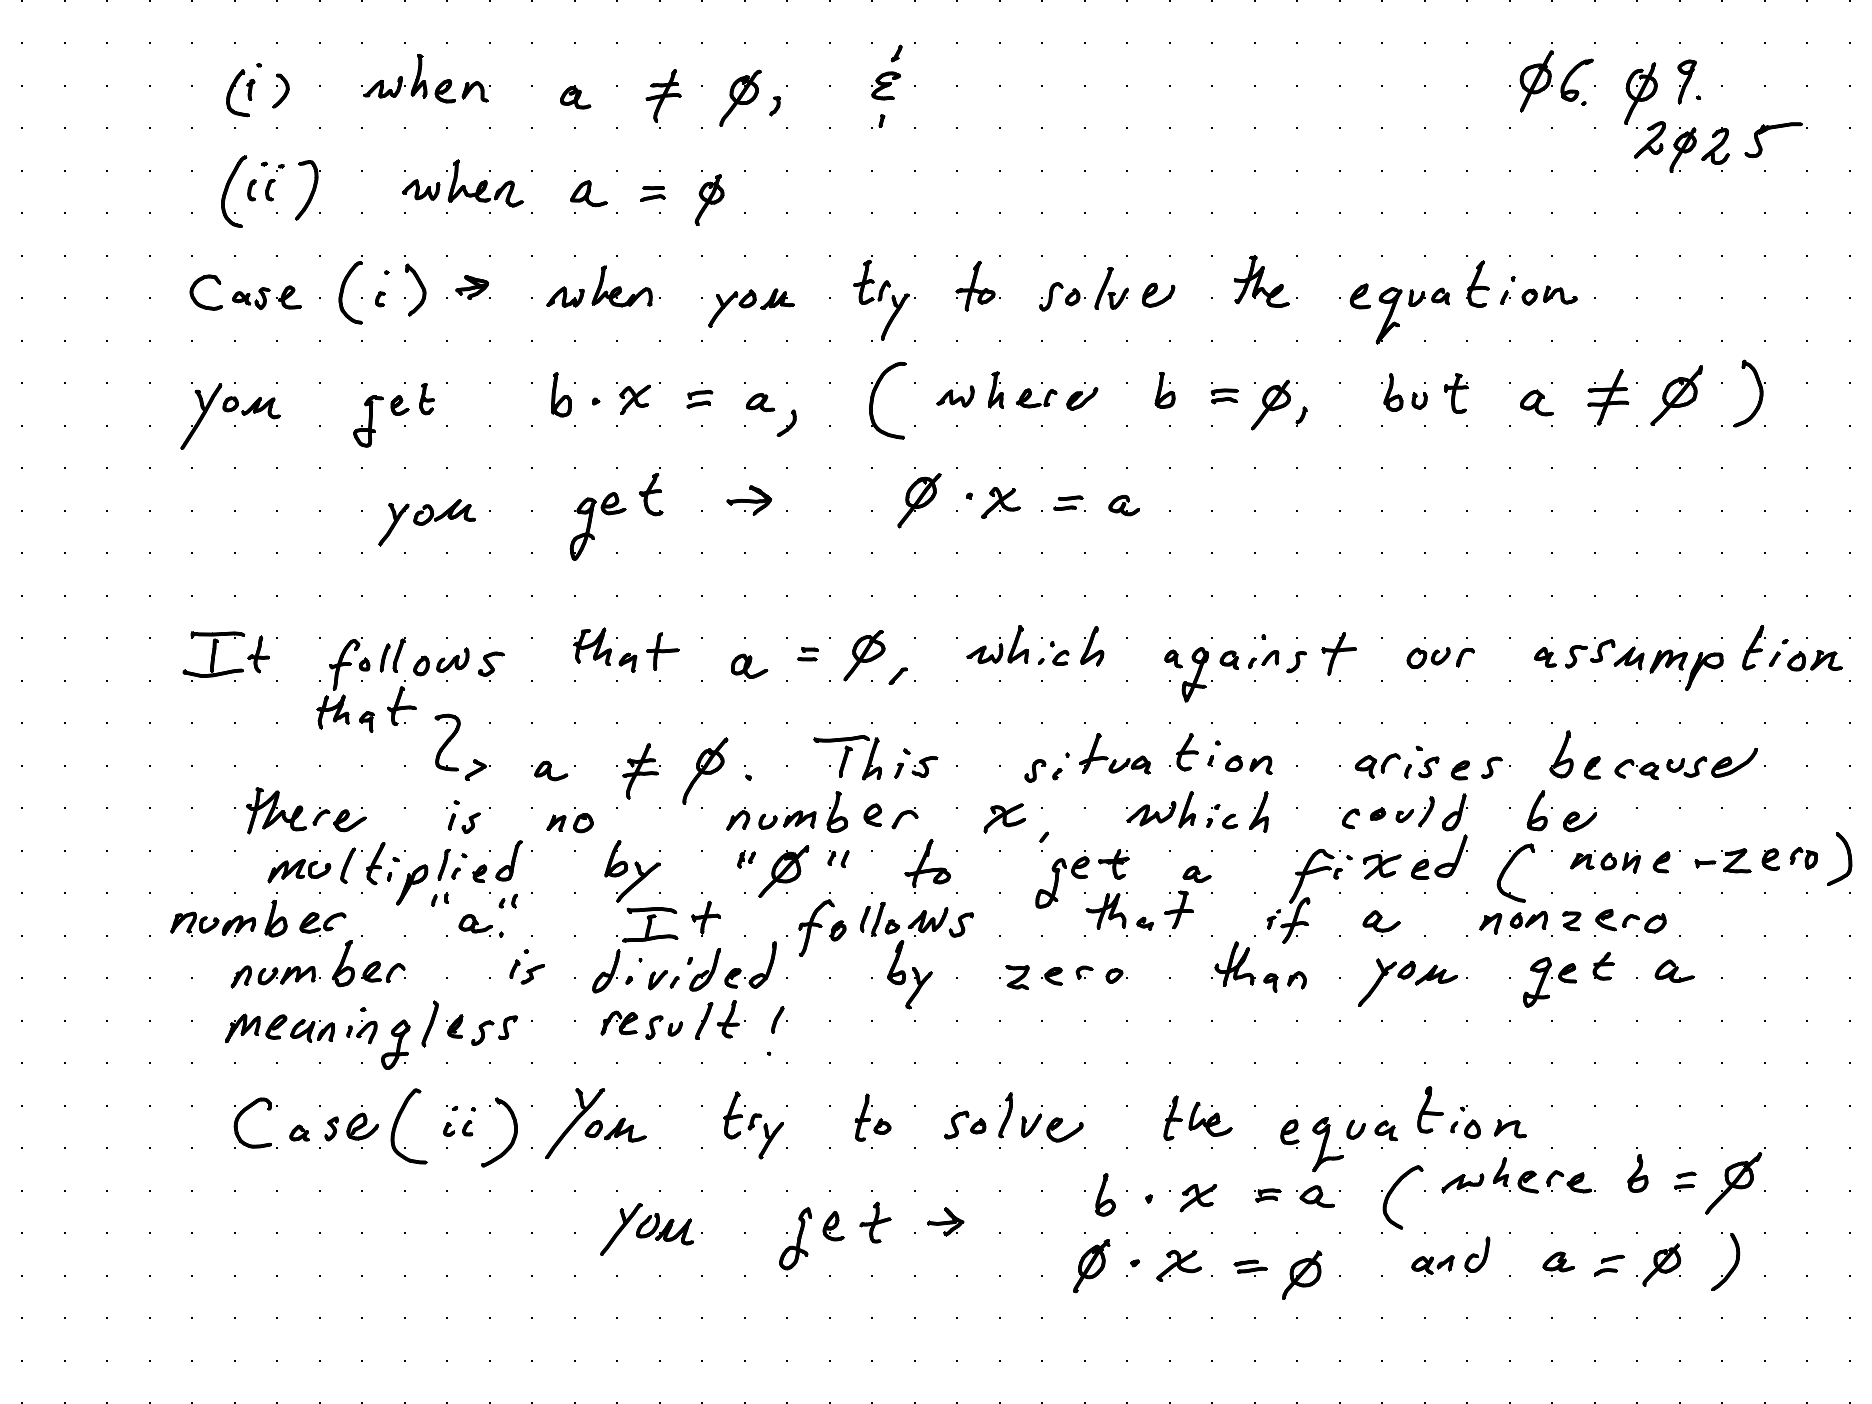 (i) when a ≠ ∅, &
∅6. ∅9.
2∅25
(ii) when a = ∅
Case (i) → when you try to solve the equation
you get b · x = a, (where b = ∅, but a ≠ ∅)
you get → ∅ · x = a
It follows that a = ∅, which against our assumption
that
→ a ≠ ∅. This situation arises because
there is no number x, which could be
multiplied by "∅" to get a fixed (none-zero)
number "a." It follows that if a nonzero
number is divided by zero than you get a
meaningless result!
Case (ii) You try to solve the equation
you get → b · x = a (where b = ∅
∅ · x = ∅ and a = ∅)